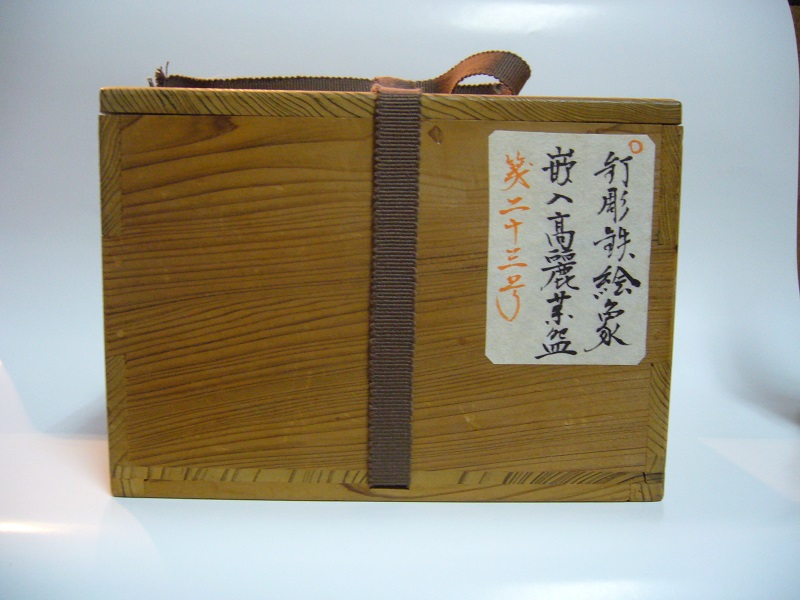 釘彫鉄絵象
嵌入高麗茶盌
箋二十三号